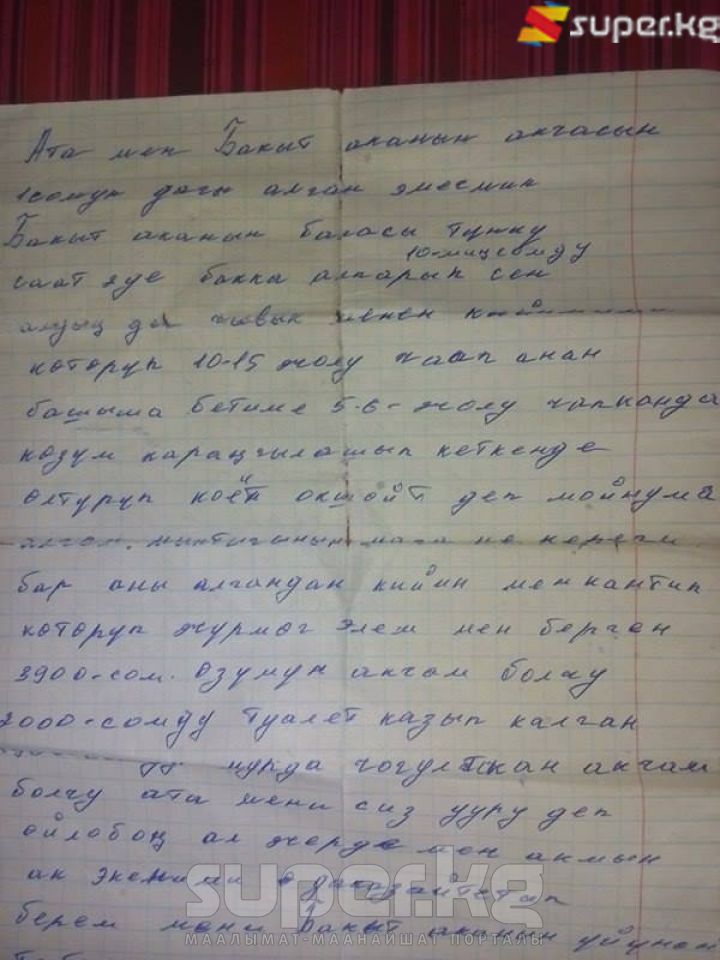 super.kg
Ата мен Бакыт аканын акчасын
1 сомун дагы алган эмесмин
Бакыт аканын баласы түнкү
10-миң сомду
саат эде бакка алпарып сен
алдың да чывык менен
которуп 10-15 жолу чаап анан
башыма бетиме 5-6-жолу чапканда
козум караңгылашып кеткенде
олтуруп коёт окшойт деп мойнума
алгам. мага не кереги
бар аны алгандан кийин мен кантип
которуп журмог элем мен берген
3900-сом. озумун акчам болчу
2000-сомду туалет казып калган
чогулткан акчам
болчу ата мени сиз ууру деп
ойлобоң ал жерде мен акмын
ак экеними
берем мени Бакыт аканын уйунон
super.kg
МААЛЫМАТ-МААНАЙШАТ ПОРТАЛЫ